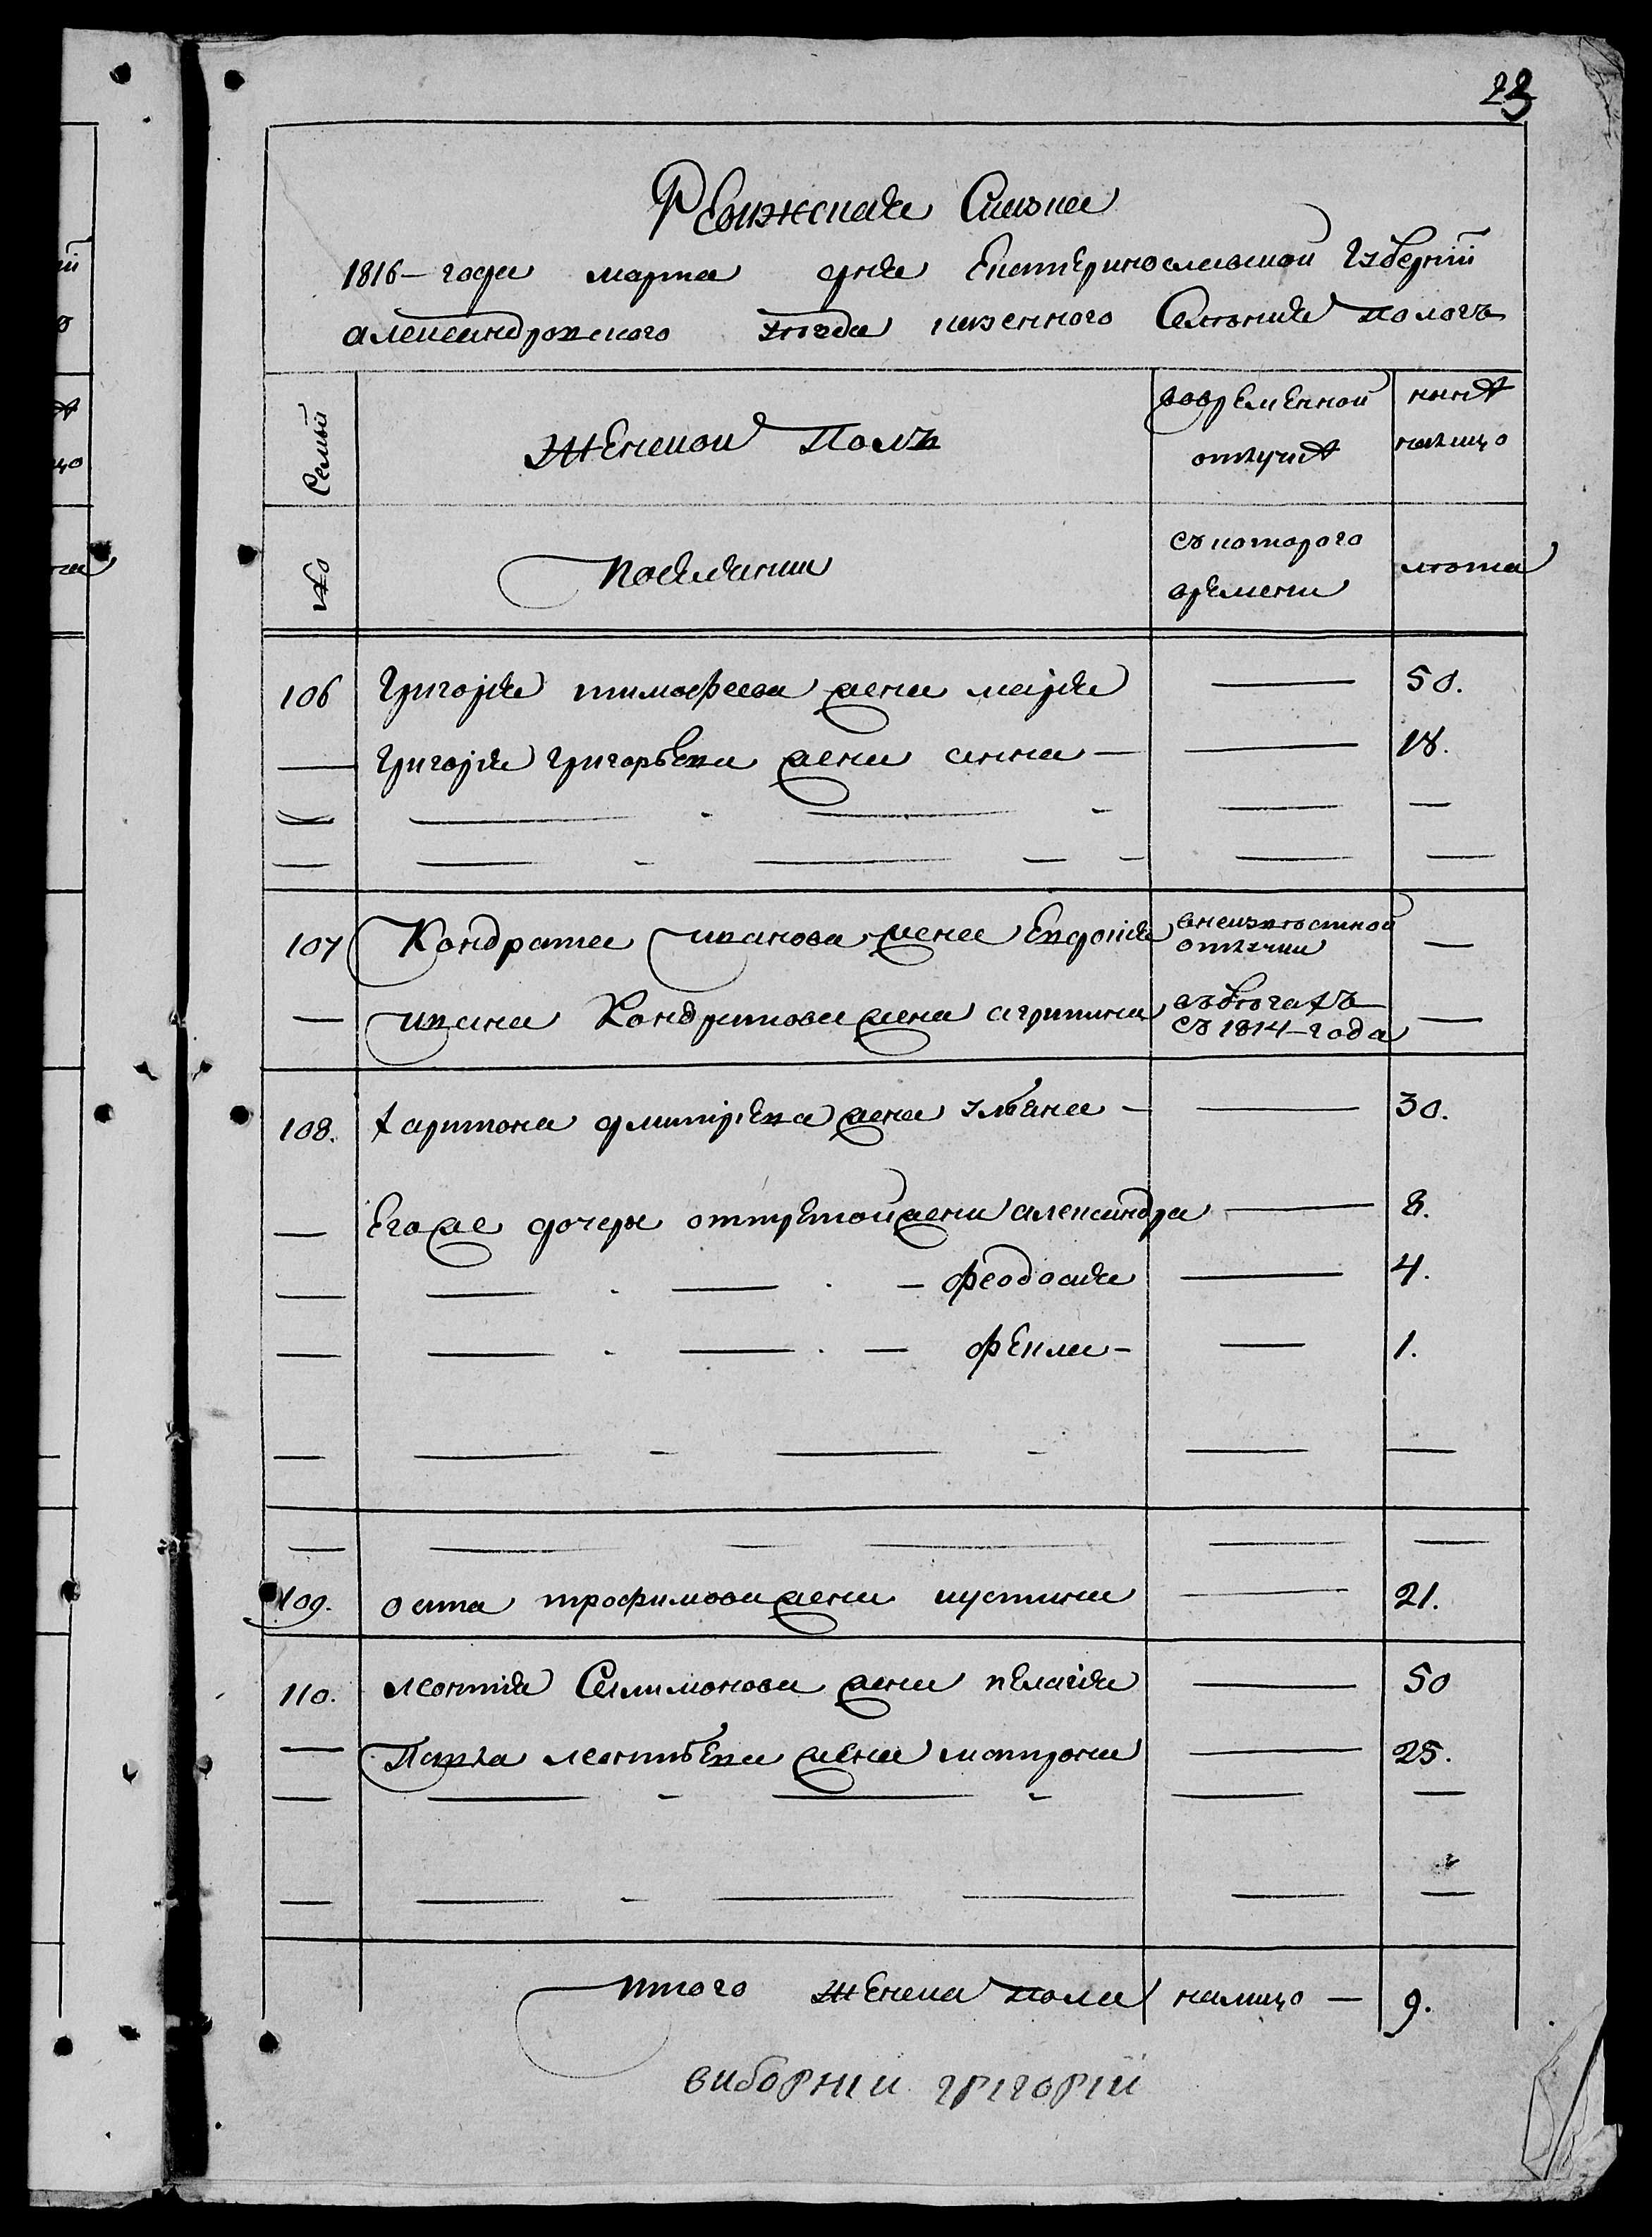 23
Ревижская Скаска
1816– года марта дня Екатеринославской Губернїи
александровского уезда казенного Селения пологъ
Семьи
Женской Полъ
вовременной отлучке
ныне налицо
№
Поселянки
съ которого времени
лета
106 Григорія тимофеева жена марія — 50.
— Григорія григорьева жена анна — — 18.
107 Кондрата иванова жена Евдокія внеизвестной отлучки —
— ивана Кондратова жена агрипина въбегахъ съ 1814–года —
108. харитона дмитріева жена ульяна — — 30.
— Егоже дочеры оттретой жени александра — 8.
— — — феодосия — 4.
— — — фекла — — 1.
109. остапа трофимова жена иустина — 21.
110. леонтия Салимонова жена пелагія — 50
— Павла леонтьева жена матрона — 25.
итого женска пола налицо — 9.
виборнии григории